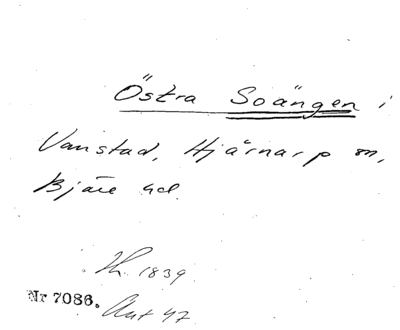 Östra Soängen i
Vanstad, Hjärnarp sn,
Bjäre hd.
Th. 1839
Nr 7086. Akt 47